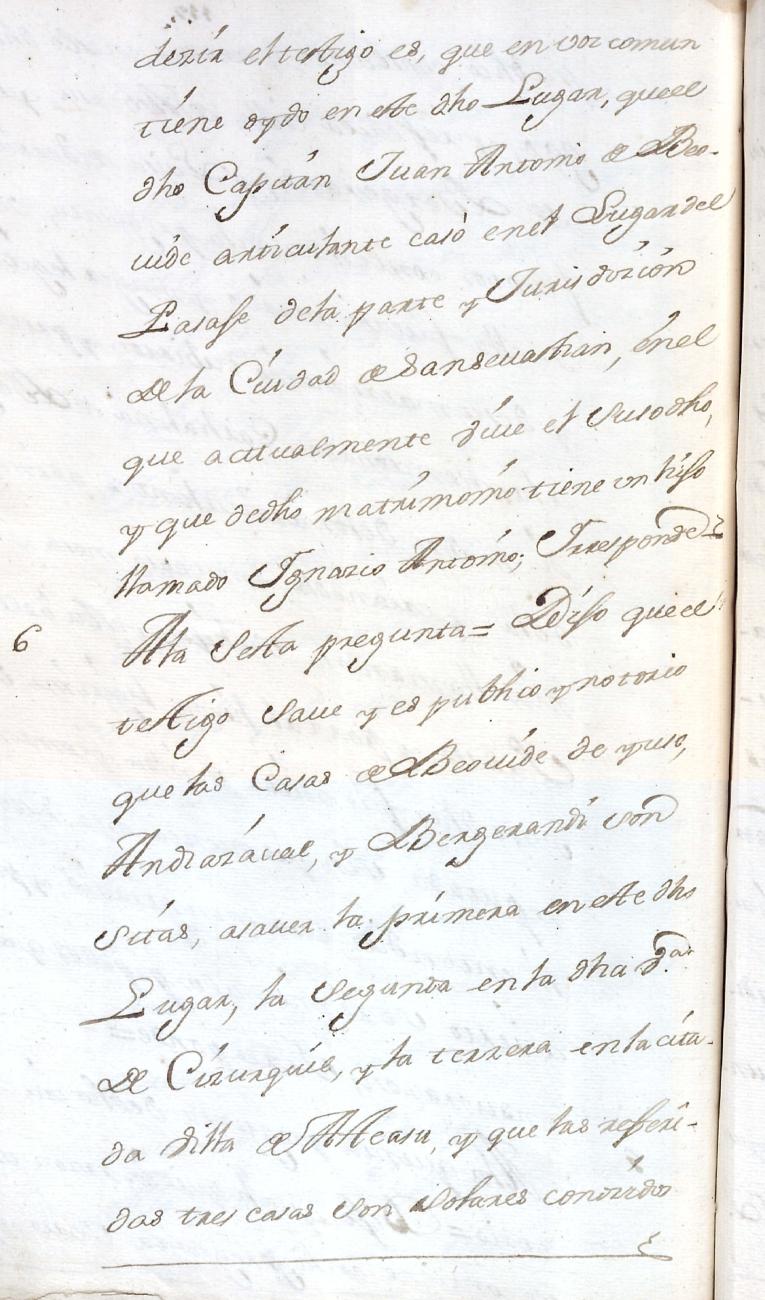 dezir el testigo es, que en voz comun
tiene oydo en este dho Lugar, que el
dho Capitán Juan Antonio de Beo-
uide articulante casò en el Lugar del
Pasase de la parte y Jurisdizión
de la Ciudad de Sanseuastian, en el
que actualmente viue el susodho,
y que de dho matrimonio tiene vn hijo
llamado Ignazio Antonio; Y rresponde
6 A la Sesta pregunta = Dijo que el
testigo saue y es publico y notorio
que las Casas de Beouide de yuso,
Andiazáual, y Bergerandi son
sitas, asauer la primera en este dho
Lugar, la segunda en la dha
de Cizurquil, y la terzera en la cita-
da villa de Ateasu, y que las referi-
das tres casas son solares conozidos